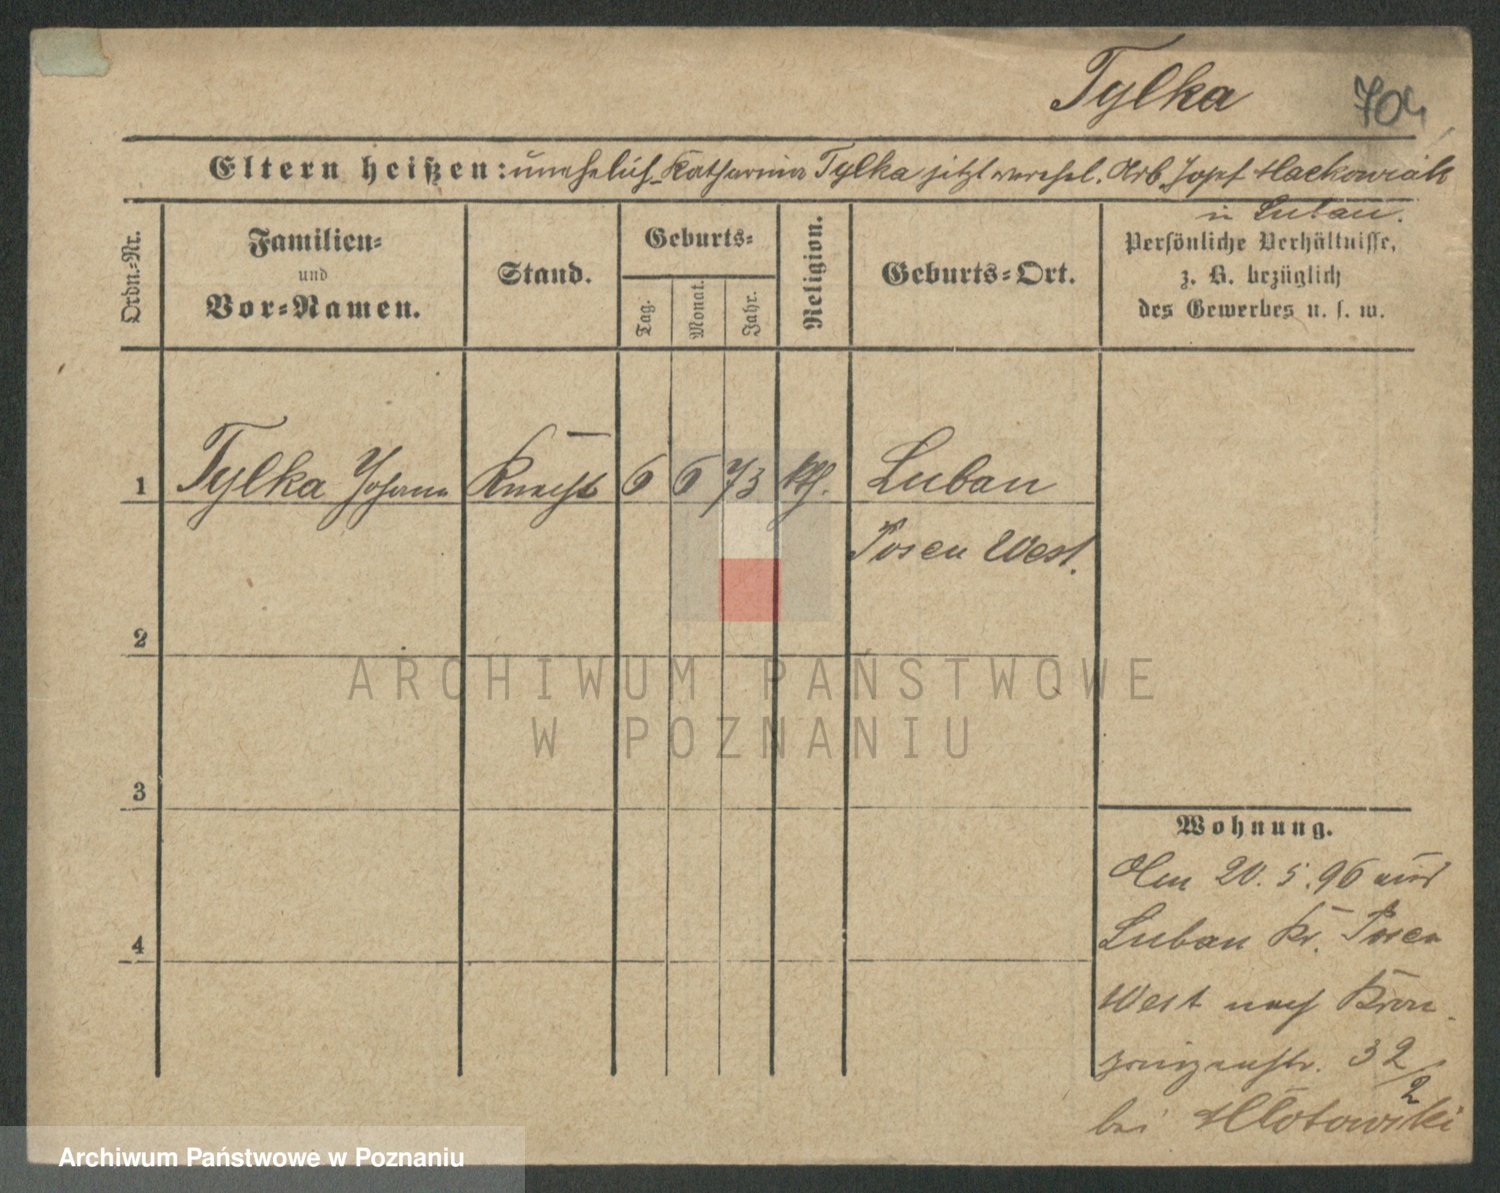 Tylka
704
Eltern heißen: unehelich Katharina Tylka jetzt verehel. Arb. Josef Maćkowiak
in Luban.
Ordn.-Nr.
Familien-
und
Vor-Namen.
Stand.
Geburts-
Tag.
Monat.
Jahr.
Religion.
Geburts-Ort.
Persönliche Verhältnisse,
z. B. bezüglich
des Gewerbes u. s. w.
1 Tylka Johann Knecht 6 6 73 kth. Luban
Posen West.
2
3
4
Wohnung.
Am 20. 5. 96 aus
Luban Kr. Posen
West nach Kron-
prinzenstr. 32/2
bei
ARCHIWUM PAŃSTWOWE
W POZNANIU
Archiwum Państwowe w Poznaniu